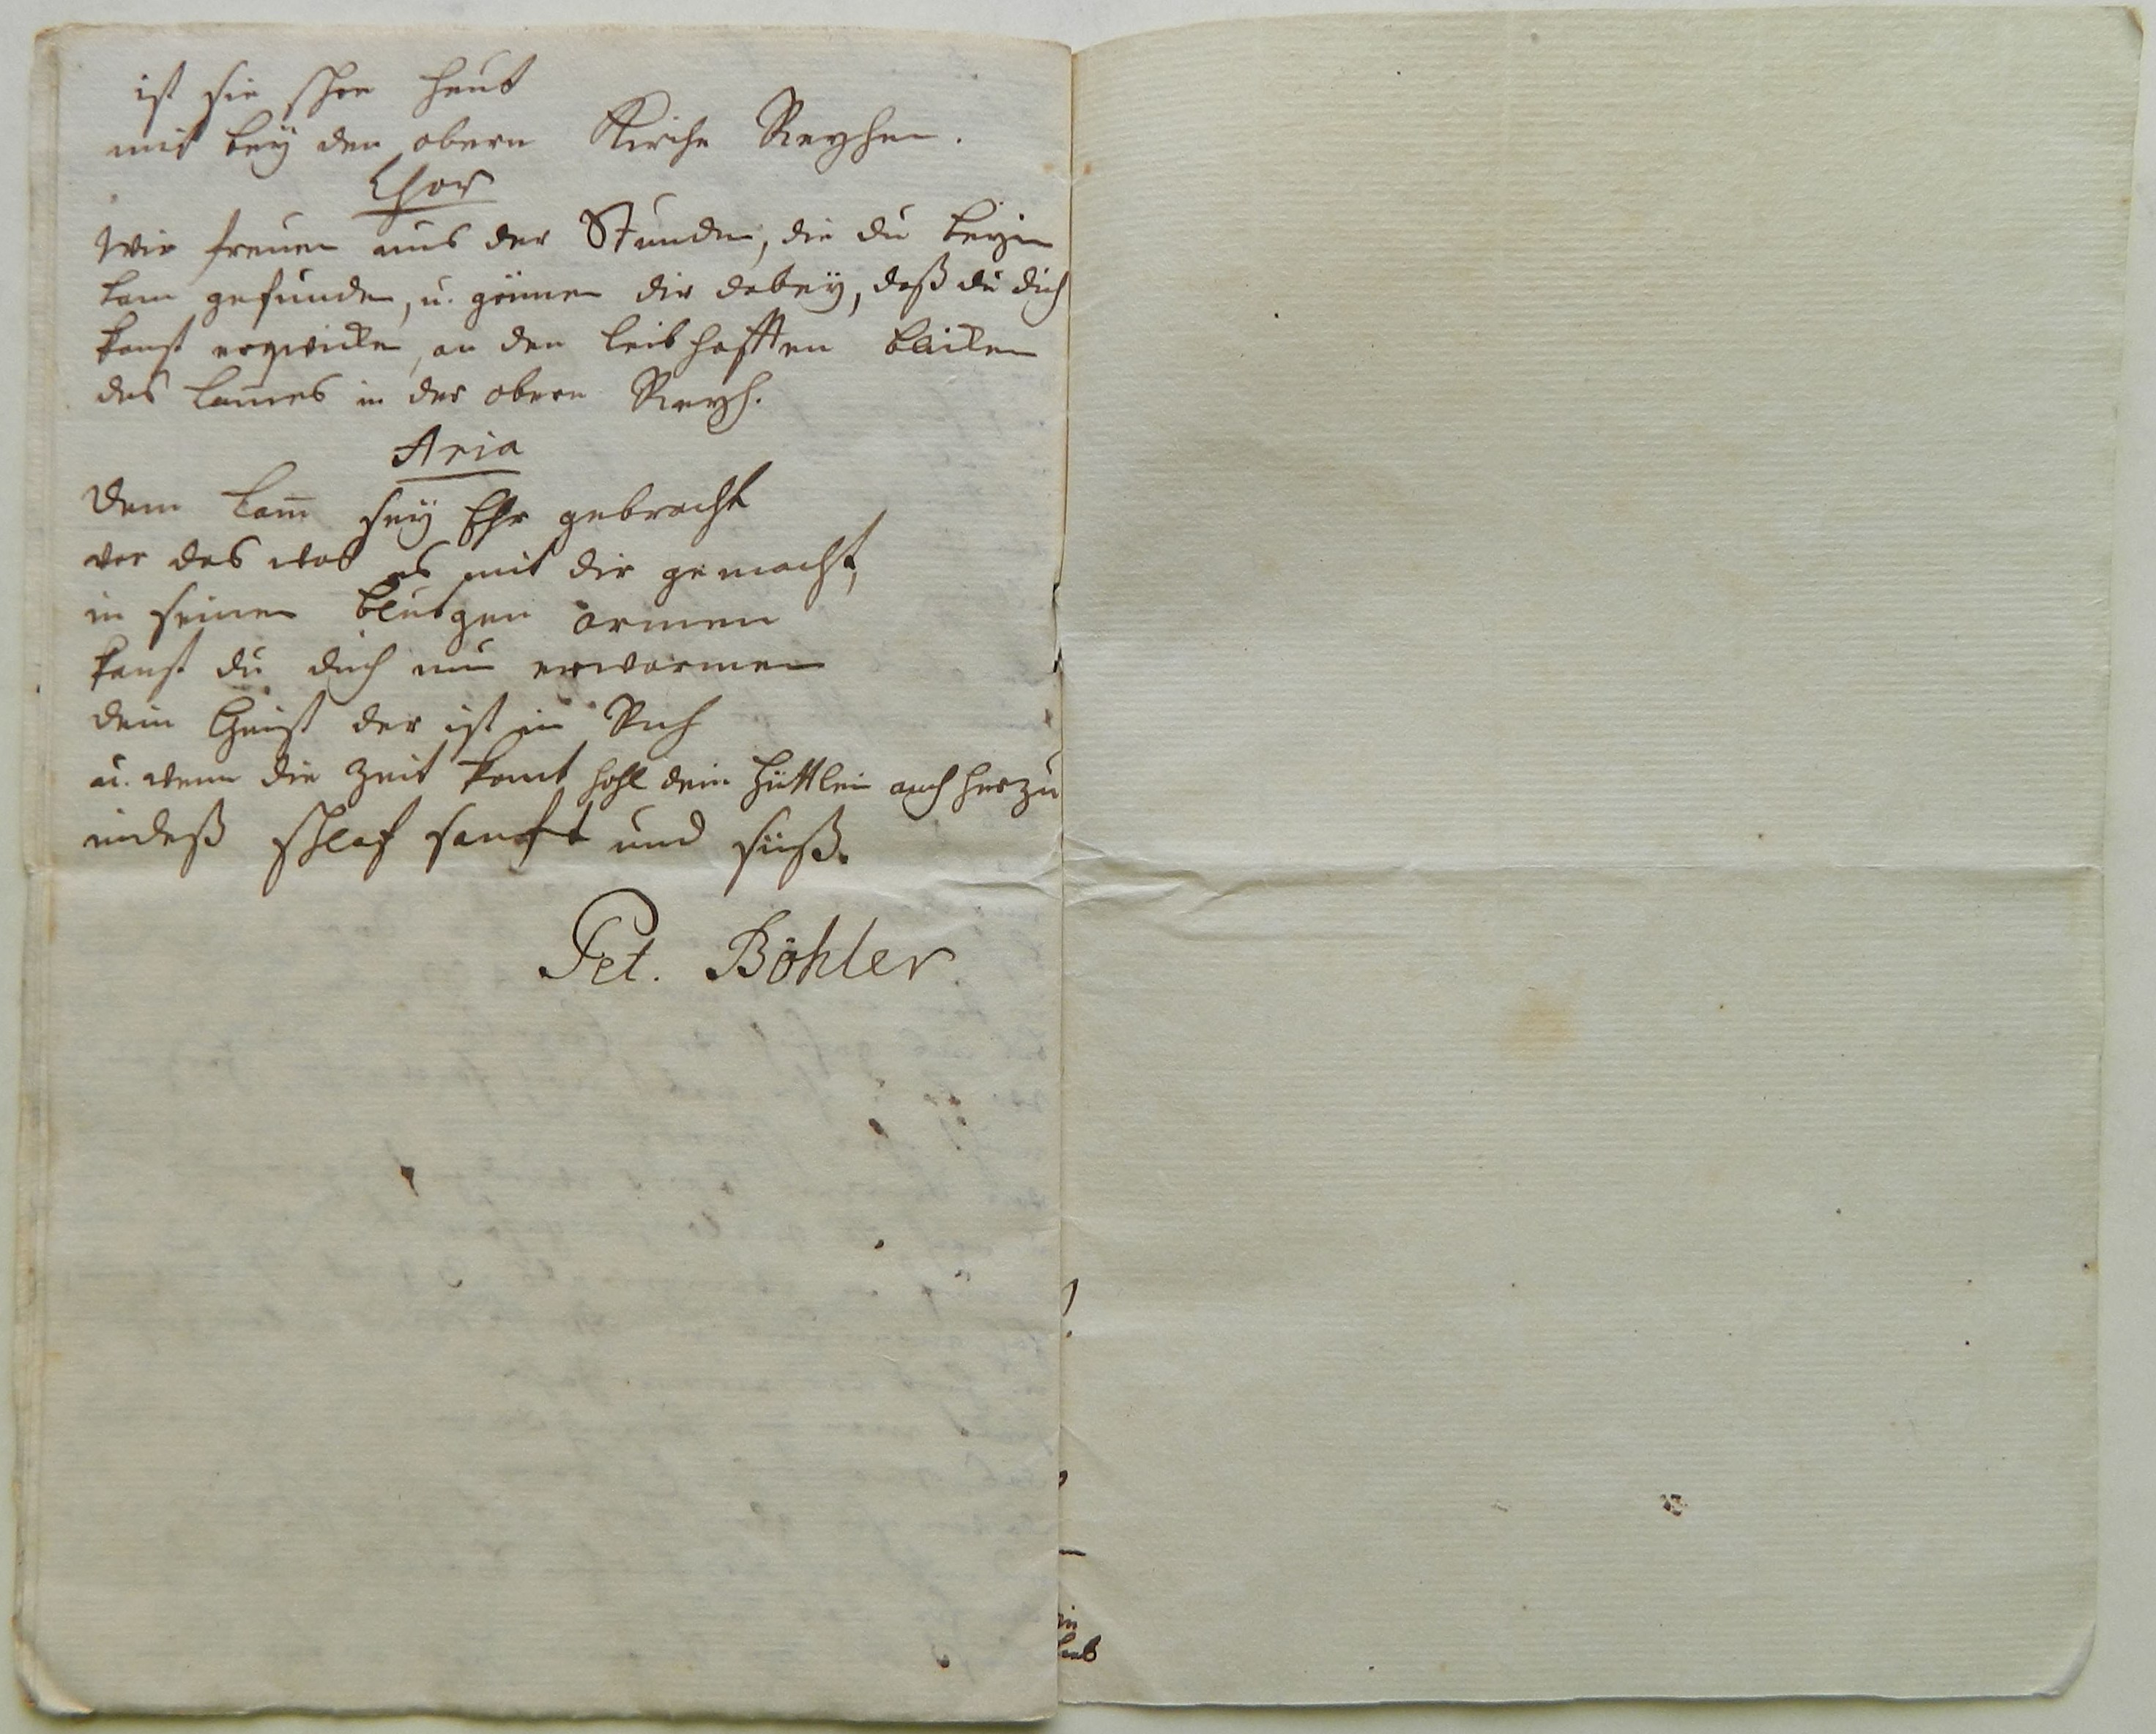 ist sie schon heut
mit bey den obern Kirche Reyhen.
Chor
Wir freuen uns der Stunden, die du beym
Lam gefunden, u. gönnen dir dabey, daß du dich
kanst erqvicken, an den leibhafften Blicken
des Lam̅es in der obern Reyh.
Aria
Dem Lam̅ sey Ehr gebracht
vor das was es mit dir gemacht,
in seinen blutgen armen
kanst du dich nun erwarmen
dein Geist der ist in Ruh
u. wenn die Zeit komt hohl dein Hüttlein auch herzu
indeß schlaf sanft und süß.
Pet. Böhler